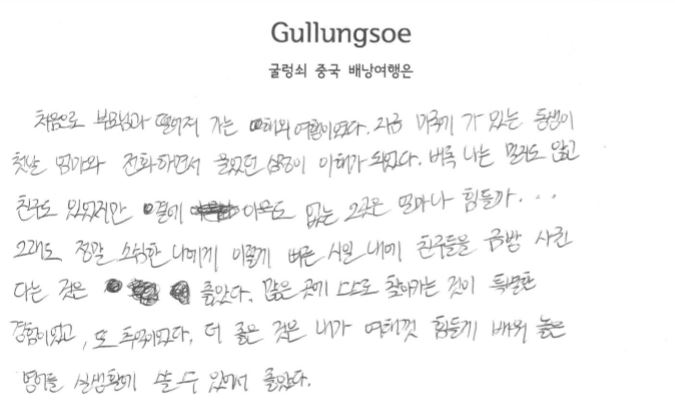 Gullungsoe
굴렁쇠 중국 배낭여행은
처음으로 부모님과 떨어져 가는 해외 여행이었다. 지금 미국에 가 있는 동생이
첫날 엄마와 전화하면서 울었던 심정이 이해가 되었다. 비록 나는 멀지도 않고
친구도 있었지만 옆에 아무도 없는 그곳은 얼마나 힘들까...
그래도 정말 소심한 나에게 이렇게 빠른 시일 내에 친구들을 금방 사귄
다는 것은 좋았다. 많은 곳에 스스로 찾아가는 것이 특별한
경험이었고, 또 추억이었다. 더 좋은 것은 내가 여태껏 힘들게 배워 놓은
영어를 실생활에 쓸 수 있어서 좋았다.